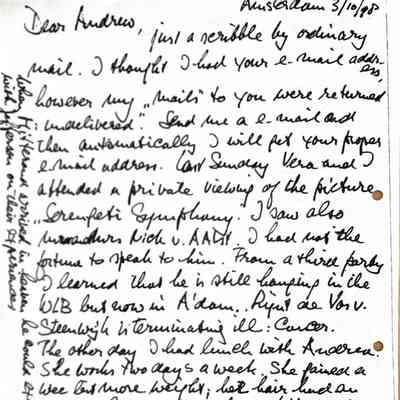 Amsterdam 3/10/98
Dear Andrew, just a scribble by ordinary
mail. I thought I had your e-mail address,
however my "mails" to you were returned
"undelivered". Send me a e-mail and
then automatically I will get your proper
e-mail address. Last Sunday Vera and I
attended a private viewing of the picture
"Serengeti Symphony. I saw also
Nick v. I had not the
fortune to speak to him. From a third party
I learned that he is still hanging in the
WLB but now in A'dam. de Vos v.
Steenwijk is terminating ill: Cancer.
The other day I had lunch with Andrea.
She works two days a week. She gained a
wee bit more weight; her hair had an
arrived in heaven he could
with Jefferson on their experiences